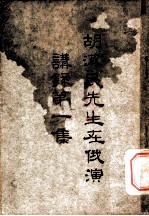 胡漢民先生在俄演
講録第一集